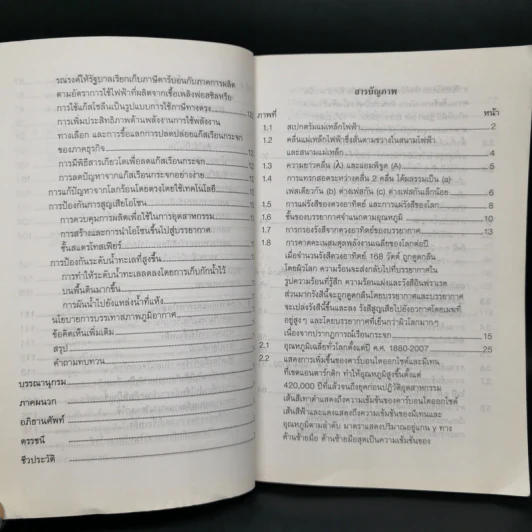 รณรงค์ให้รัฐบาลเรียกเก็บภาษีคาร์บอนกับภาคการผลิต
ตามอัตราการใช้ไฟฟ้าที่ผลิตจากเชื้อเพลิงฟอสซิลหรือ
การใช้แก๊สโซลีนเป็นรูปแบบการใช้ภาษีทางตรง
การเพิ่มประสิทธิภาพด้านพลังงานการใช้พลังงาน
ทางเลือก และการซื้อแลกการปลดปล่อยแก๊สเรือนกระจก
ของภาคธุรกิจ
การมีพิธีสารเกียวโตเพื่อลดแก๊สเรือนกระจก
การลดปัญหาจากแก๊สเรือนกระจกอย่างง่าย
การแก้ปัญหาจากโลกร้อนโดยตรงโดยใช้เทคโนโลยี
การป้องกันการสูญเสียโอโซน
การควบคุมการผลิตเพื่อใช้ในการอุตสาหกรรม
การสร้างและการนำโอโซนขึ้นไปสู่บรรยากาศ
ชั้นสแตรโทสเฟียร์
การป้องกันระดับน้ำทะเลที่สูงขึ้น
การทำให้ระดับน้ำทะเลลดลงโดยการเก็บกักน้ำไว้
บนพื้นดินมากขึ้น
การผันน้ำไปยังแหล่งน้ำที่แห้ง
นโยบายการบรรเทาสภาพภูมิอากาศ
ข้อคิดเห็นเพิ่มเติม
สรุป
คำถามทบทวน
บรรณานุกรม
ภาคผนวก
อภิธานศัพท์
ดรรชนี
ชีวประวัติ
สารบัญภาพ
ภาพที่ หน้า
1.1 สเปกตรัมแม่เหล็กไฟฟ้า 2
1.2 คลื่นแม่เหล็กไฟฟ้าซึ่งสั่นตามขวางในสนามไฟฟ้า
และสนามแม่เหล็ก 4
1.3 ความยาวคลื่น (λ) และแอมพิจูด (A) 5
1.4 การแทรกสอดระหว่างคลื่น 2 คลื่น ได้ผลรวมเป็น (a)
เฟสเดียวกัน (b) ต่างเฟสกัน (c) ต่างเฟสกันเล็กน้อย 6
1.5 การแผ่รังสีของดวงอาทิตย์ และการแผ่รังสีของโลก 8
1.6 ชั้นของบรรยากาศจำแนกตามอุณหภูมิ 10
1.7 การกรองรังสีจากดวงอาทิตย์ของบรรยากาศ 13
1.8 การคาดคะเนสมดุลพลังงานเฉลี่ยของโลกต่อปี
เมื่อจำนวนรังสีดวงอาทิตย์ 168 วัตต์ ถูกดูดกลืน
โดยผิวโลก ความร้อนจะส่งกลับไปที่บรรยากาศใน
รูปความร้อนที่รู้สึก ความร้อนแฝงและรังสีอินฟราเรด
ส่วนมากรังสีนี้จะถูกดูดกลืนโดยบรรยากาศและบรรยากาศ
จะเปล่งรังสีนี้ขึ้นและลง รังสีสูญเสียไปยังอวกาศโดยเมฆที่
อยู่สูงๆ และโดยบรรยากาศที่เย็นกว่าผิวโลกมากๆ
เนื่องจากปรากฏการณ์เรือนกระจก 15
2.1 อุณหภูมิเฉลี่ยทั่วโลกตั้งแต่ปี ค.ศ. 1880-2007 25
2.2 แสดงการเพิ่มขึ้นของคาร์บอนไดออกไซด์และมีเทน
ที่เขตแอนตาร์กติก ทำให้อุณหภูมิสูงขึ้นตั้งแต่
420,000 ปีที่แล้วจนถึงยุคก่อนปฏิวัติอุตสาหกรรม
เส้นสีเทาดำแสดงถึงความเข้มข้นของคาร์บอนไดออกไซด์
เส้นสีฟ้าและแดงแสดงถึงความเข้มข้นของมีเทนและ
อุณหภูมิตามลำดับ มาตราแสดงปริมาณอยู่แกน y ทาง
ด้านซ้ายมือ ด้านซ้ายมือสุดเป็นความเข้มข้นของ